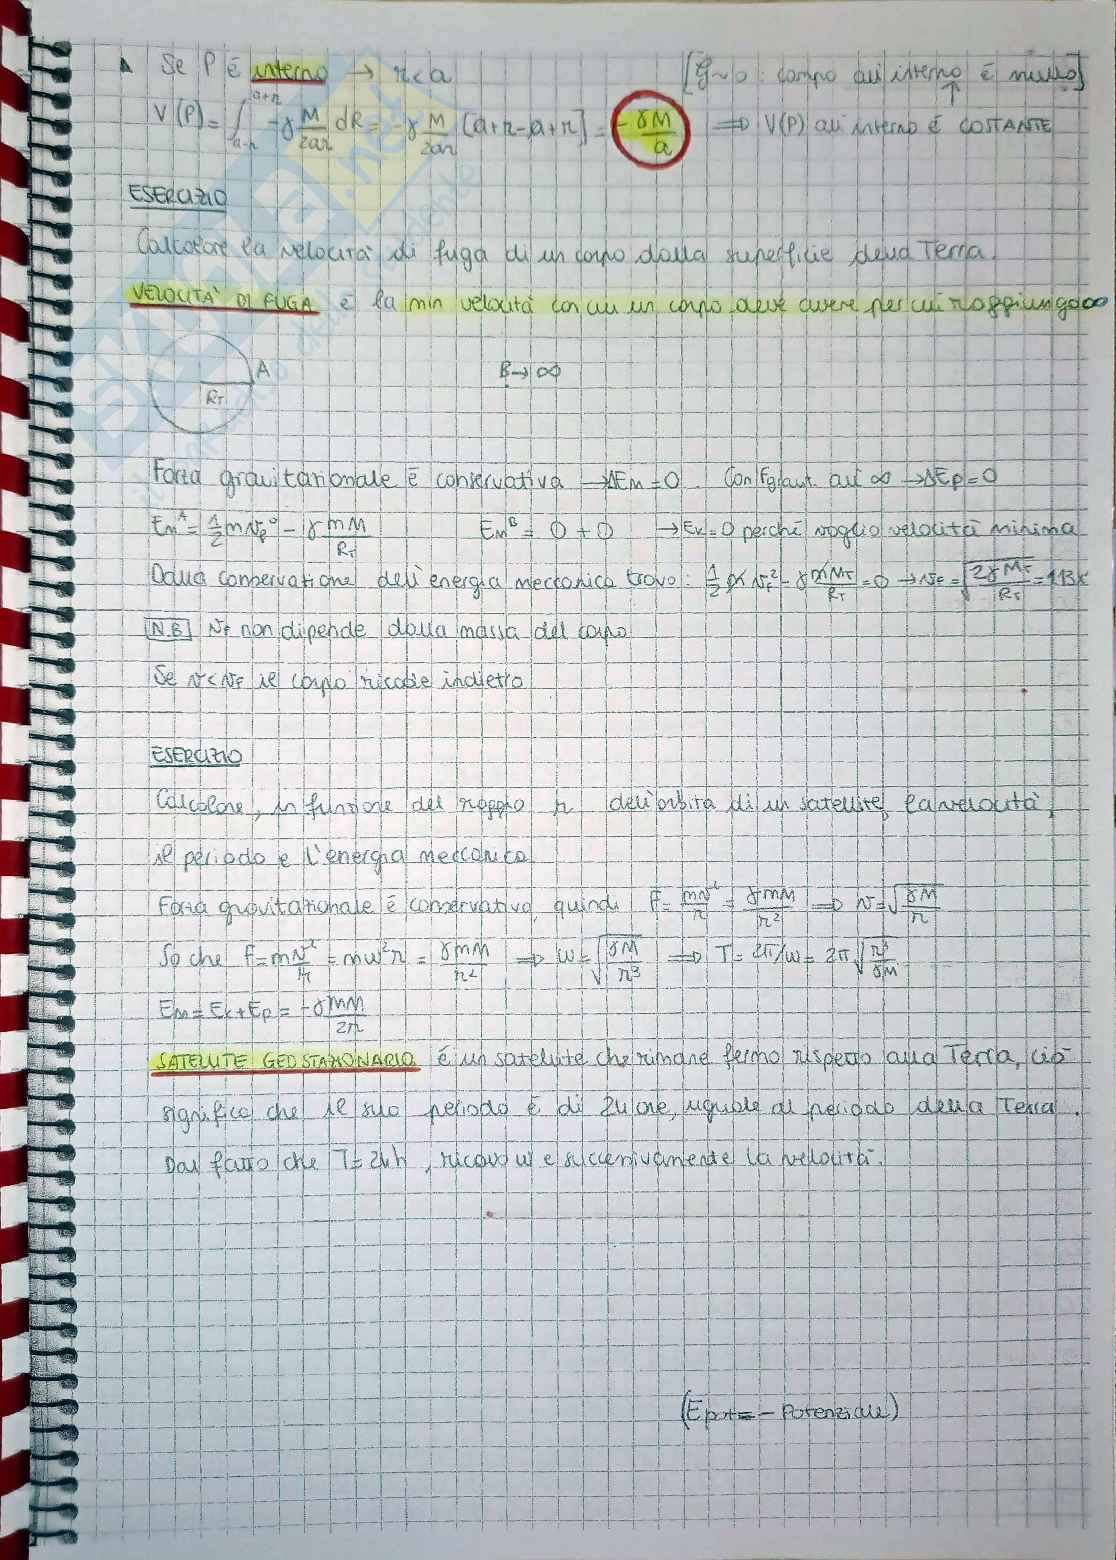 Se P è interno → r<a [G~0: campo all'interno è nullo]
V(P)=∫_{a-r}^{a+r} -γ M/2ar dR = -γ M/2ar [a+r-a+r] = -γM/a ⇒ V(P) all'interno è COSTANTE
ESERCIZIO
Calcolare la velocità di fuga di un corpo dalla superficie della Terra.
VELOCITÀ DI FUGA è la min velocità con cui un corpo deve avere per cui raggiunga ∞
A B→∞
R_T
Forza gravitazionale è conservativa →ΔEm=0. Config aut. all'∞ →ΔEp=0
Em^A = 1/2 m v_f² - γ mM/R_T Em^B = 0 + 0 →Ek=0 perché voglio velocità minima
Dalla conservazione dell'energia meccanica trovo: 1/2 m v_f² - γ mM_T/R_T = 0 → v_F = √(2γM_T/R_T) = 113K
N.B v_f non dipende dalla massa del corpo
Se v<v_F il corpo ricade indietro
ESERCIZIO
Calcolare, in funzione del raggio r dell'orbita di un satellite, la velocità,
il periodo e l'energia meccanica
Forza gravitazionale è conservativa, quindi F = mv²/r = γmM/r² ⇒ v=√(γM/r)
So che F=m v²/r = mω²r = γmM/r² ⇒ ω=√(γM/r³) ⇒ T= 2π/ω = 2π√(r³/γM)
Em=Ek+Ep = -γ mM/2r
SATELLITE GEOSTAZIONARIO è un satellite che rimane fermo rispetto alla Terra, ciò
significa che il suo periodo è di 24 ore, uguale al periodo della Terra.
Dal fatto che T=24h, ricavo ω e successivamente la velocità.
(Epot = - Potenziale)
skuola.net